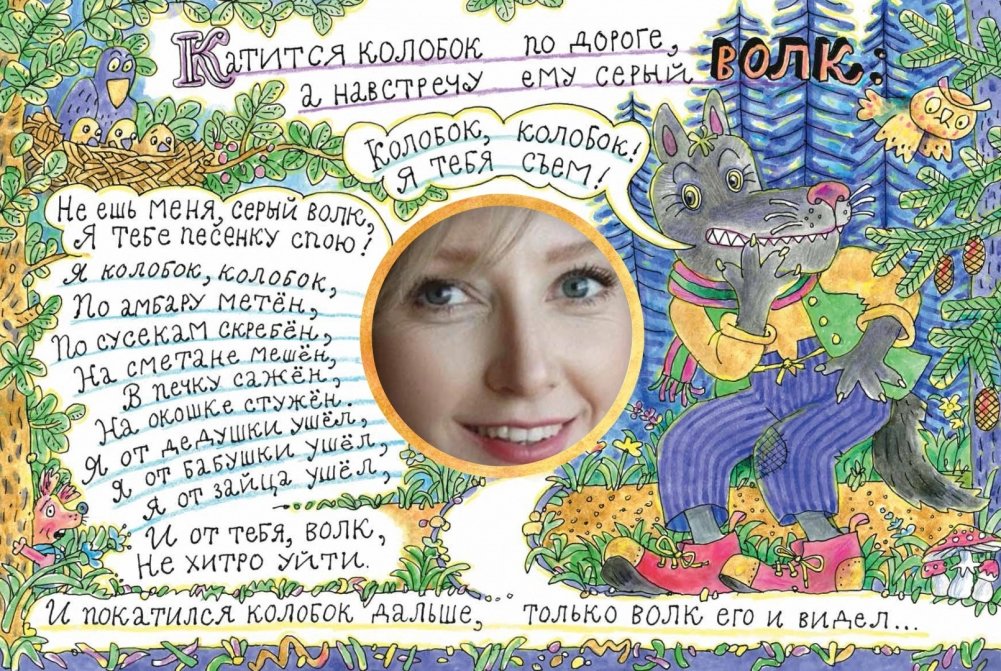 Катится колобок по дороге,
а навстречу ему серый волк:
Колобок, колобок!
Я тебя съем!
Не ешь меня, серый волк,
Я тебе песенку спою!
Я колобок, колобок,
По амбару метён,
По сусекам скребён,
На сметане мешён,
В печку сажён,
На окошке стужён.
Я от дедушки ушёл,
Я от бабушки ушёл,
Я от зайца ушёл,
И от тебя, волк,
Не хитро уйти.
И покатился колобок дальше, только волк его и видел...